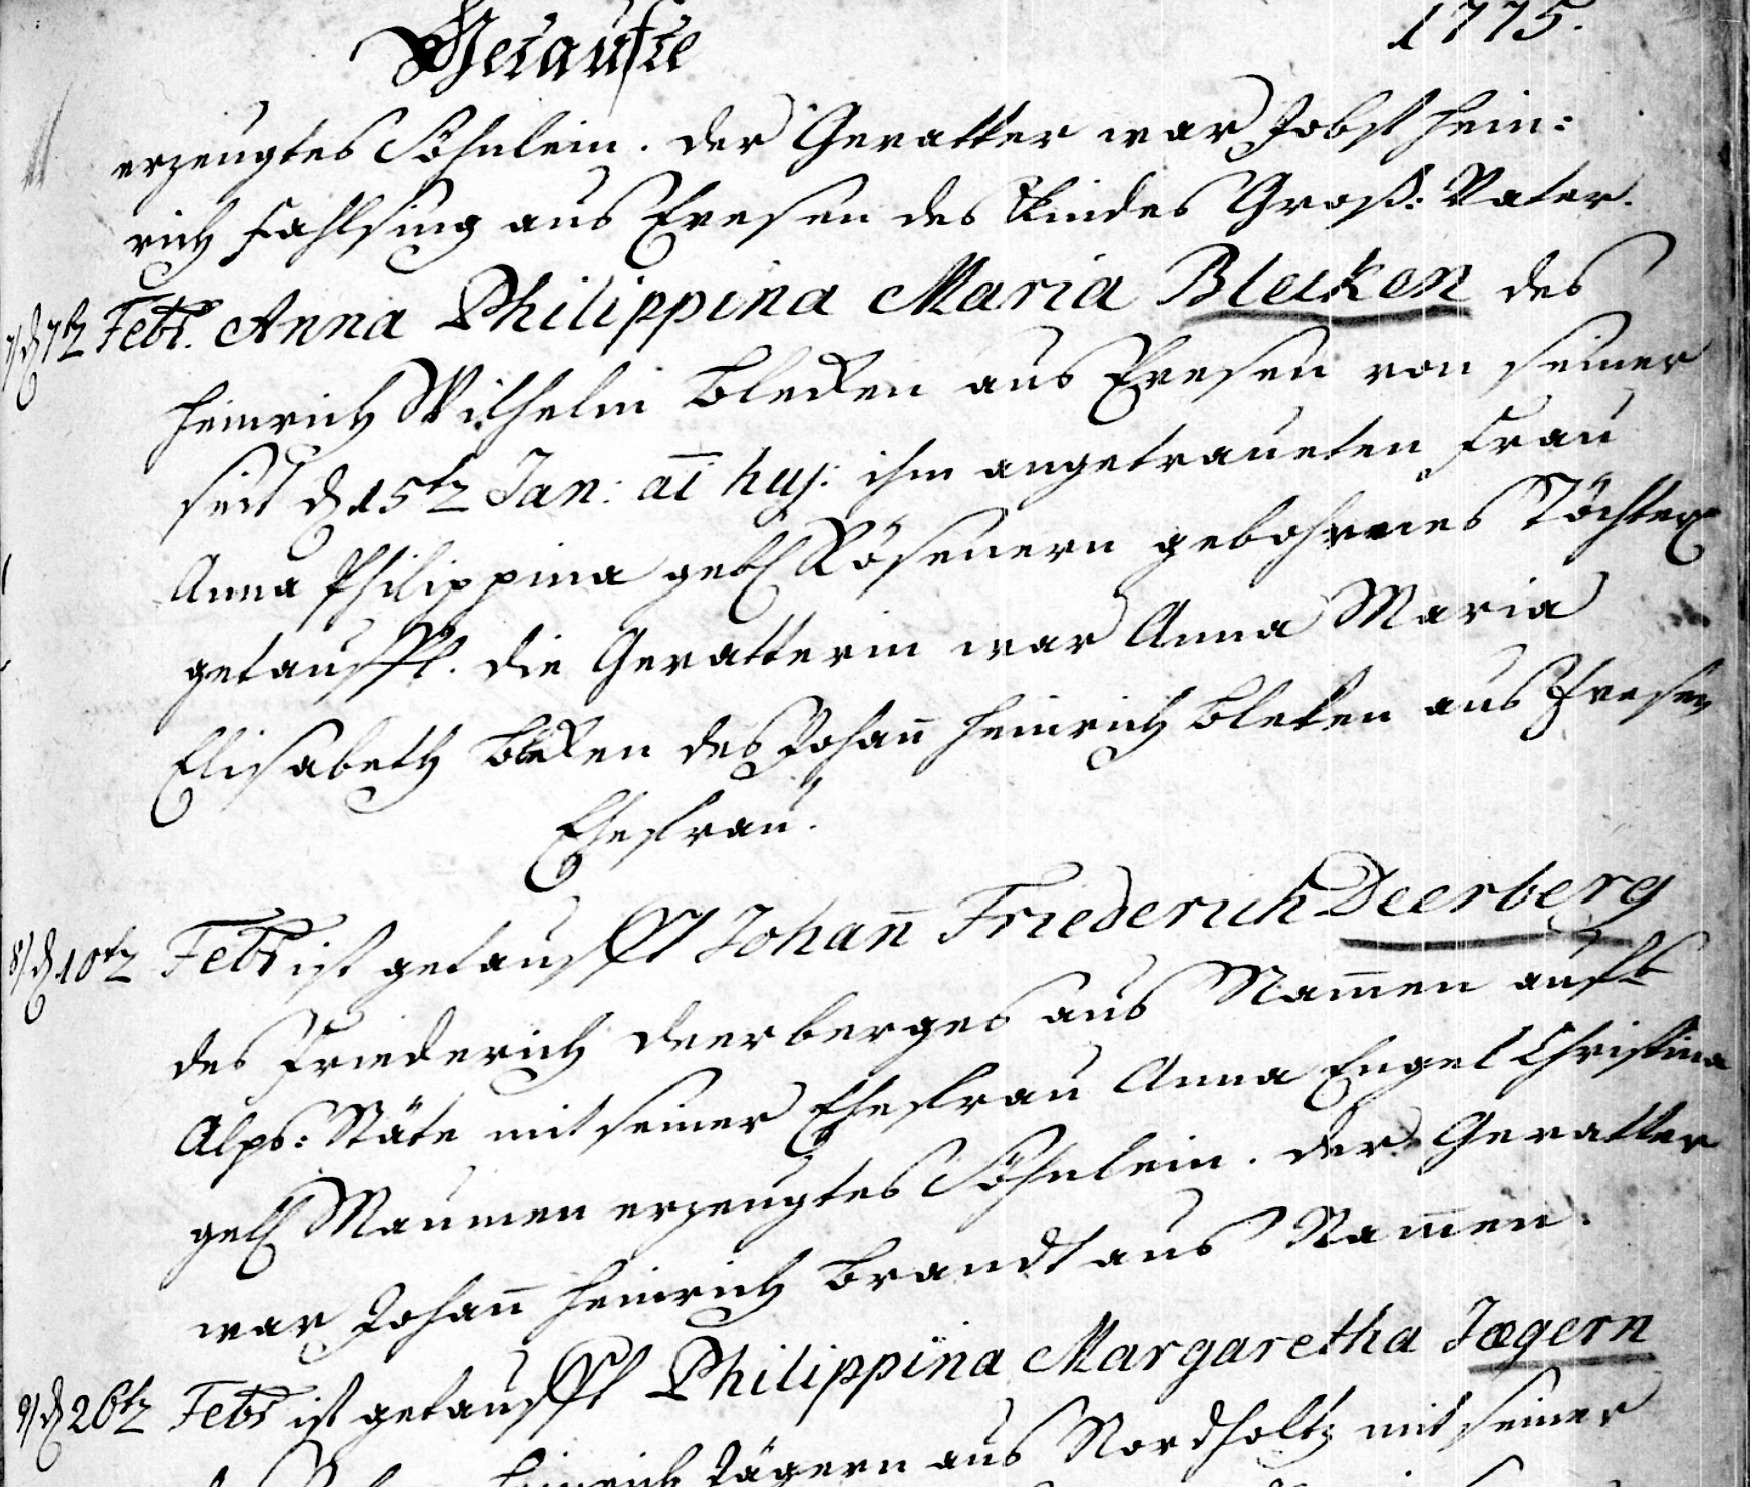 Getaufte 1775.
erzeugtes Söhnlein. der Gevatter war Jobst Hein:
rich Fahlsing aus Evesen des Kindes Groß: Vater.
7/ d 7tz Febr. Anna Philippina Maria Bleiken des
Heinrich Wilhelm Bleken aus Evesen von seiner
seit d 15tz Jan: aī huj: ihm angetraueten Frau
Anna Philippina geb Röseuern gebohrenes Töchter
getaufft. die Gevatterin war Anna Maria
Elisabeth Bleken des Johan̄ Heinrich Bleken aus Evesen
Ehefrau.
8/ d 10tz Febr ist getaufft Johan̄ Friederich Deerberg
des Friederich Deerberges aus Nam̄en aufr
Alps: Stäte mit seiner Ehefrau Anna Engel Christina
geb Maumen erzeugtes Söhnlein. der Gevatter
war Johan̄ Heinrich Brandt aus Nam̄en.
9/ d 26tz Febr ist getaufft Philippina Margaretha Jægern
Heinrich Jägern aus Nordholtz mit seiner